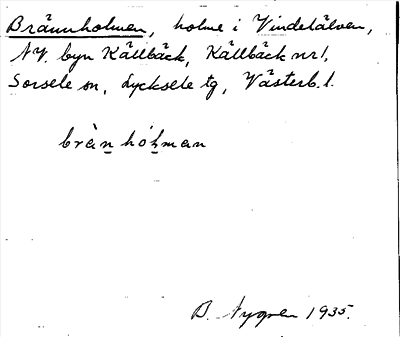 Brännholmen, holme i Vindelälven,
NV. byn Källbäck, Källbäck nr 1,
Sorsele sn, Lycksele tg, Västerb. l.
brànhóhman
B. Nygren 1935.